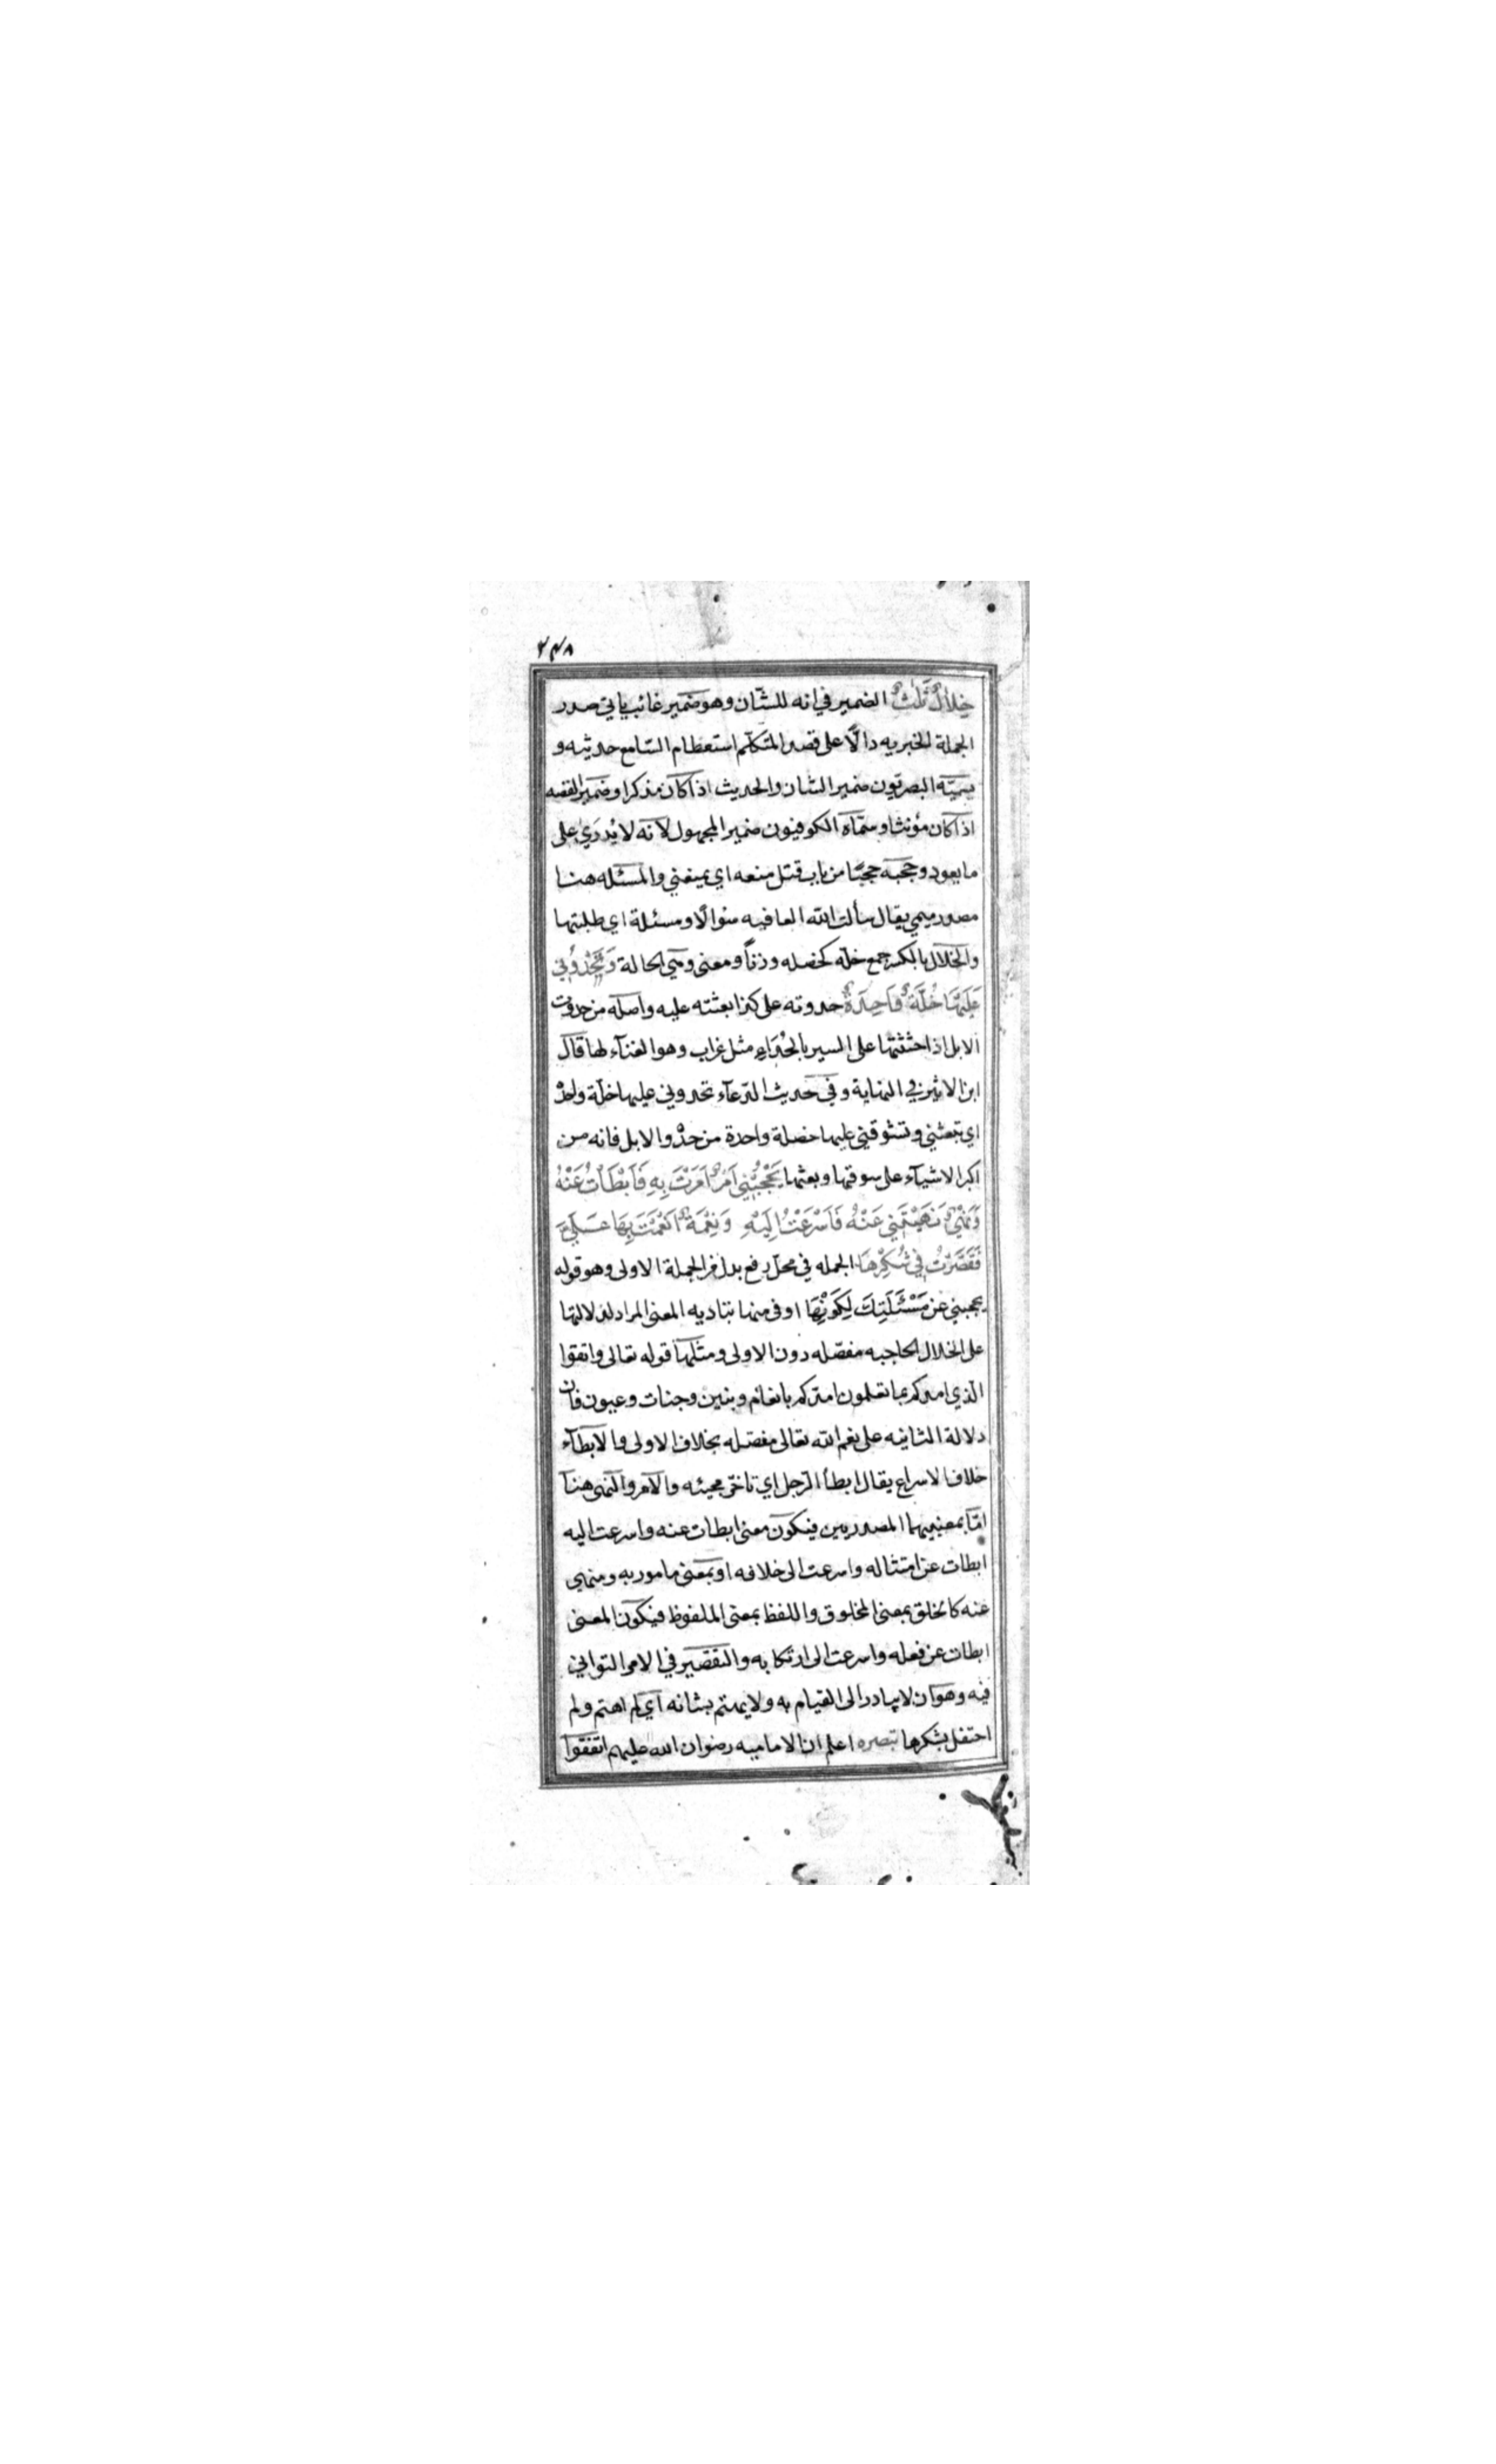 ٢٤٨
خِلَالٌ ثَلٰثٌ الضمير في انه للشّان وهو ضمير غائب ياتي صدر
الجملة الخبريه دالًّا على قصد المتكلّم استعظام السّامع حديثه و
يسميّه البصريّون ضمير الشان والحديث اذا كان مذكرا وضمير القصه
اذا كان مؤنثا وسمّاه الكوفيون ضمير المجهول لانّه لا يُدرَي على
ما يعود وحجبه حجبًا من باب قتل منعه اي يمنعني والمسئله هنا
مصدر ميمي يقال سألت الله العافيه سؤالًا ومسئلة اي طلبتها
والخلال بالكسر جمع خلّه كخصله وزناً ومعنى وهي الحالة وَتَحْدُوُنِي
عَلَيْهَا خُلَّةٌ وَاحِدَةٌ حدوته على كذا بعثته عليه واصله من حدوت
الابل اذا حثثتها على السير بالحُدَاءِ مثل غراب وهو الغنآء لها قال
ابن الاثير في النهاية وفي حديث الدّعآء تحدوني عليها خلّة واحدة
اي تبعثني وتسوقني عليها خصلة واحدة من حدْو الابل فانه من
اكبر الاشيآء على سوقها وبعثها يَحْجُبُنِي اَمْرٌ اَمَرْتَ بِهِ فَاَبْطَاْتُ عَنْهُ
وَنَهْيٌ نَهَيْتَنِي عَنْهُ فَاَسْرَعْتُ اِلَيْهِ وَنِعْمَةٌ اَنْعَمْتَ بِهَا عَلَيَّ
فَقَصَّرْتُ فِي شُكْرِهَا الجمله في محلّ رفع بدل من الجملة الاولى وهو قوله
يحجبني عن مَسْئَلَتِكَ لِكَوْنِهَا اوفى منها بتاديه المعنى المراد لدلالتها
على الخلال الحاجبه مفصّله دون الاولى ومثلها قوله تعالى واتقوا
الّذي امدكم بما تعلمون امدّكم بانعام وبنين وجنات وعيون فان
دلالة الثانيه على نعم الله تعالى مفصّله بخلاف الاولى والابطآء
خلاف الاسراع يقال ابطأ الرّجل اي تاخّر مجيئه والامر والنهى هنآ
امّا بمعنييهما المصدريين فيكون معنى ابطات عنه واسرعت اليه
ابطات عن امتثاله واسرعت الى خلافه او بمعنى مامور به ومنهى
عنه كالخلق بمعنى المخلوق واللفظ بمعنى الملفوظ فيكون المعنى
ابطات عن فعله واسرعت الى ارتكابه والتقصير في الامر التواني
فيه وهو ان لا يبادر الى القيام به ولا يهتم بشانه اي لم اهتم ولم
احتفل بشكرها تبصره اعلم ان الاماميه رضوان الله عليهم اتفقوا